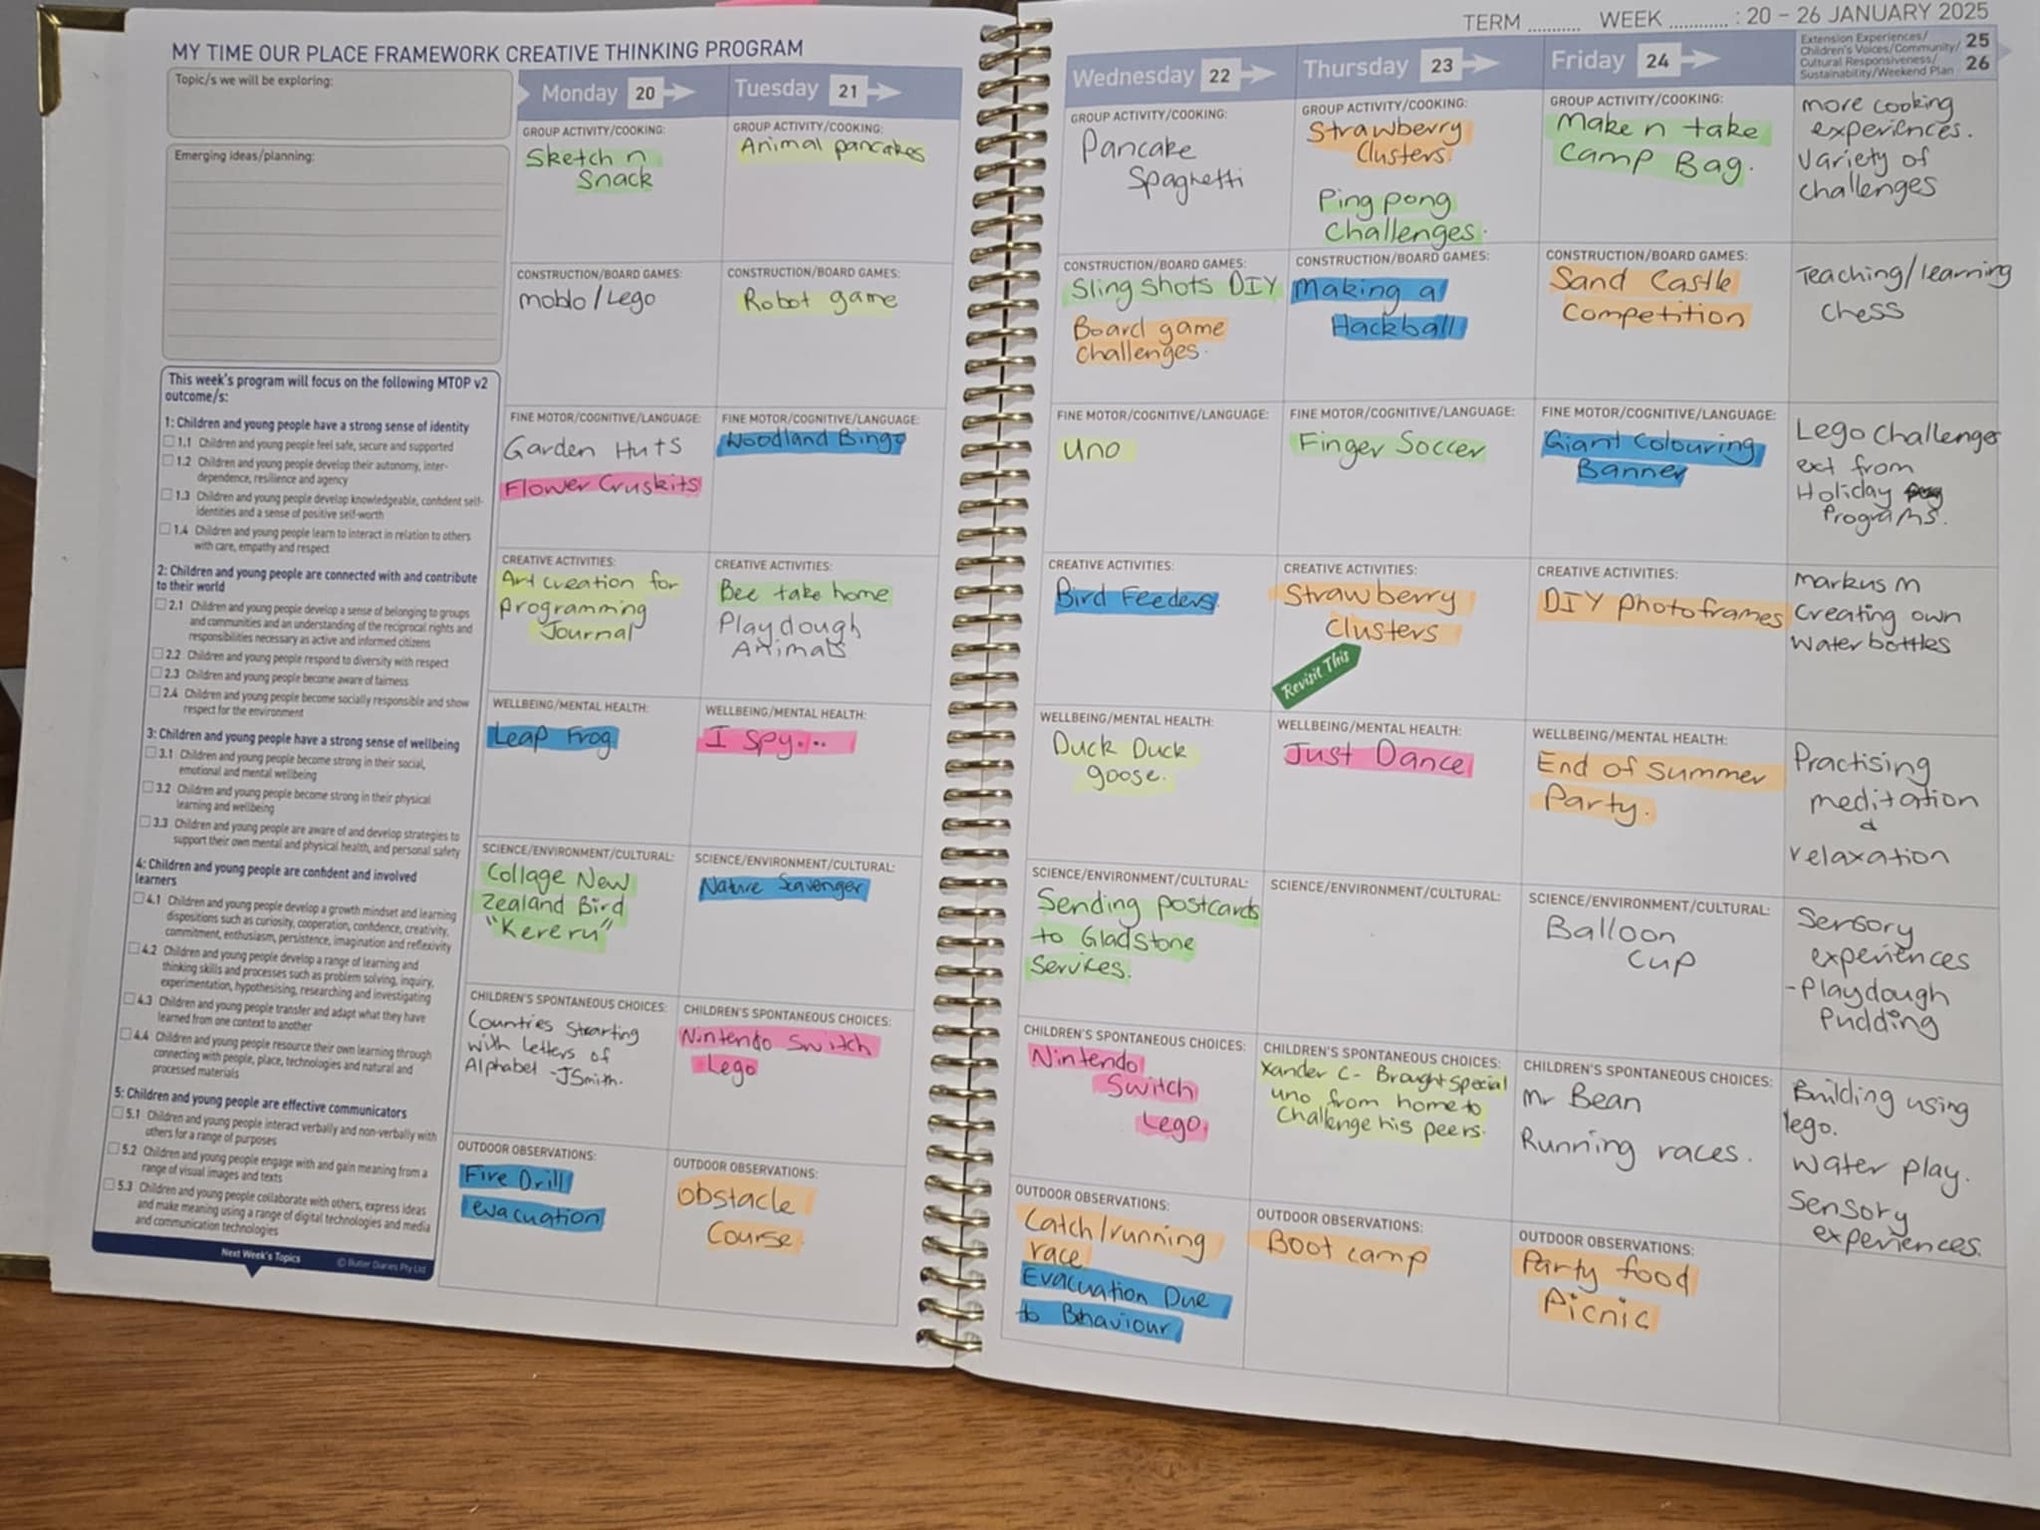 MY TIME OUR PLACE FRAMEWORK CREATIVE THINKING PROGRAM
Topic/s we will be exploring:
Emerging ideas/planning:
This week's program will focus on the following MTOP v2
outcome/s:
1: Children and young people have a strong sense of identity
1.1 Children and young people feel safe, secure and supported
1.2 Children and young people develop their autonomy, inter-
dependence, resilience and agency
1.3 Children and young people develop knowledgeable, confident self-
identities and a sense of positive self-worth
1.4 Children and young people learn to interact in relation to others
with care, empathy and respect
2: Children and young people are connected with and contribute
to their world
2.1 Children and young people develop a sense of belonging to groups
and communities and an understanding of the reciprocal rights and
responsibilities necessary as active and informed citizens
2.2 Children and young people respond to diversity with respect
2.3 Children and young people become aware of fairness
2.4 Children and young people become socially responsible and show
respect for the environment
3: Children and young people have a strong sense of wellbeing
3.1 Children and young people become strong in their social,
emotional and mental wellbeing
3.2 Children and young people become strong in their physical
learning and wellbeing
3.3 Children and young people are aware of and develop strategies to
support their own mental and physical health, and personal safety
4: Children and young people are confident and involved
learners
4.1 Children and young people develop a growth mindset and learning
dispositions such as curiosity, cooperation, confidence, creativity,
commitment, enthusiasm, persistence, imagination and reflexivity
4.2 Children and young people develop a range of learning and
thinking skills and processes such as problem solving, inquiry,
experimentation, hypothesising, researching and investigating
4.3 Children and young people transfer and adapt what they have
learned from one context to another
4.4 Children and young people resource their own learning through
connecting with people, place, technologies and natural and
processed materials
5: Children and young people are effective communicators
5.1 Children and young people interact verbally and non-verbally with
others for a range of purposes
5.2 Children and young people engage with and gain meaning from a
range of visual images and texts
5.3 Children and young people collaborate with others, express ideas
and make meaning using a range of digital technologies and media
and communication technologies
Next Week's Topics
© Butler Diaries Pty Ltd
Monday 20
GROUP ACTIVITY/COOKING:
Sketch n
Snack
CONSTRUCTION/BOARD GAMES:
moblo / Lego
FINE MOTOR/COGNITIVE/LANGUAGE:
Garden Huts
Flower Cruskits
CREATIVE ACTIVITIES:
Art creation for
programming
Journal
WELLBEING/MENTAL HEALTH:
Leap Frog
SCIENCE/ENVIRONMENT/CULTURAL:
Collage New
Zealand Bird
"Kereru"
CHILDREN'S SPONTANEOUS CHOICES:
Countries Starting
with letters of
Alphabet - JSmith.
OUTDOOR OBSERVATIONS:
Fire Drill
evacuation
Tuesday 21
GROUP ACTIVITY/COOKING:
Animal pancakes
CONSTRUCTION/BOARD GAMES:
Robot game
FINE MOTOR/COGNITIVE/LANGUAGE:
Woodland Bingo
CREATIVE ACTIVITIES:
Bee take home
Playdough
Animals
WELLBEING/MENTAL HEALTH:
I spy...
SCIENCE/ENVIRONMENT/CULTURAL:
Nature Scavenger
CHILDREN'S SPONTANEOUS CHOICES:
Nintendo Switch
Lego
OUTDOOR OBSERVATIONS:
Obstacle
Course
TERM .......... WEEK ............ : 20 – 26 JANUARY 2025
Wednesday 22
GROUP ACTIVITY/COOKING:
Pancake
Spaghetti
CONSTRUCTION/BOARD GAMES:
Sling shots DIY
Board game
challenges.
FINE MOTOR/COGNITIVE/LANGUAGE:
uno
CREATIVE ACTIVITIES:
Bird Feeders
WELLBEING/MENTAL HEALTH:
Duck Duck
goose.
SCIENCE/ENVIRONMENT/CULTURAL:
Sending postcards
to Gladstone
Services.
CHILDREN'S SPONTANEOUS CHOICES:
Nintendo
Switch
Lego
OUTDOOR OBSERVATIONS:
Catch/running
race
Evacuation Due
to Behaviour
Thursday 23
GROUP ACTIVITY/COOKING:
Strawberry
Clusters
Ping pong
Challenges.
CONSTRUCTION/BOARD GAMES:
Making a
Hackball
FINE MOTOR/COGNITIVE/LANGUAGE:
Finger Soccer
CREATIVE ACTIVITIES:
Strawberry
Clusters
Revisit This
WELLBEING/MENTAL HEALTH:
Just Dance
SCIENCE/ENVIRONMENT/CULTURAL:
CHILDREN'S SPONTANEOUS CHOICES:
Xander C- Brought special
uno from home to
challenge his peers.
OUTDOOR OBSERVATIONS:
Boot camp
Friday 24
GROUP ACTIVITY/COOKING:
Make n take
Camp Bag.
CONSTRUCTION/BOARD GAMES:
Sand Castle
Competition
FINE MOTOR/COGNITIVE/LANGUAGE:
Giant Colouring
Banner
CREATIVE ACTIVITIES:
DIY photoframes
WELLBEING/MENTAL HEALTH:
End of Summer
Party.
SCIENCE/ENVIRONMENT/CULTURAL:
Balloon
Cup
CHILDREN'S SPONTANEOUS CHOICES:
Mr Bean
Running races.
OUTDOOR OBSERVATIONS:
Party food
Picnic
Extension Experiences/
Children's Voices/Community/
Cultural Responsiveness/
Sustainability/Weekend Plan
25
26
more cooking
experiences.
Variety of
challenges
Teaching/learning
chess
Lego challenges
ext from
Holiday
Programs.
Markus M
Creating own
Water bottles
Practising
meditation
&
relaxation
Sensory
experiences
-Playdough
Pudding
Building using
lego.
Water play.
Sensory
experiences.